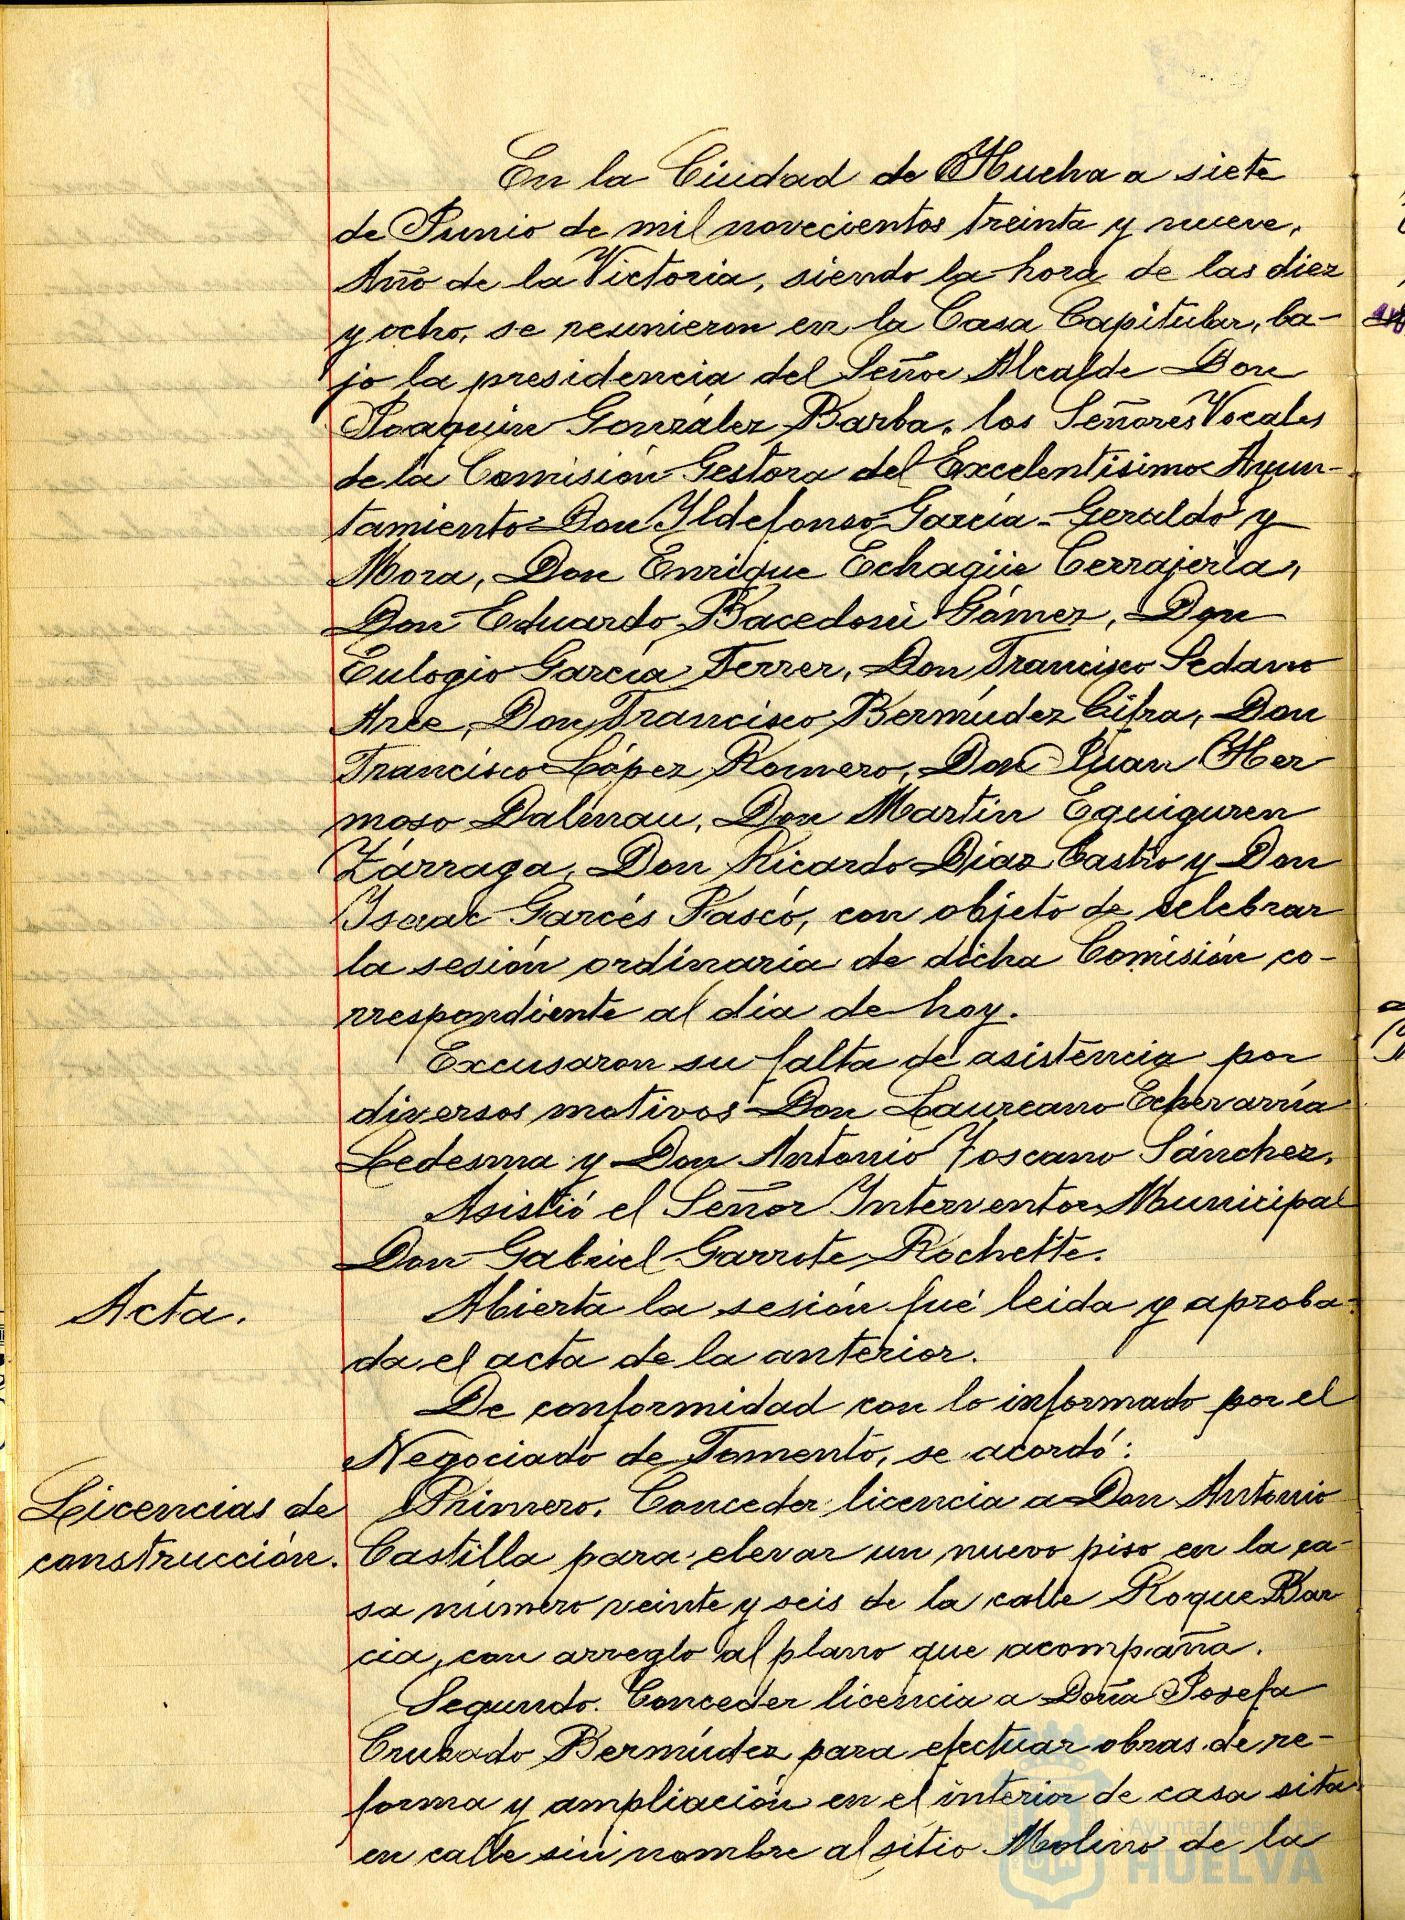 En la Ciudad de Huelva a siete
de Junio de mil novecientos treinta y nueve,
Año de la Victoria, siendo la hora de las diez
y ocho, se reunieron en la Casa Capitular, ba-
jo la presidencia del Señor Alcalde Don
Joaquín González Barba, los Señores Vocales
de la Comisión Gestora del Excelentísimo Ayun-
tamiento Don Yldefonso García-Geraldo y
Mora, Don Enrique Echagüe Cerrajería,
Don Eduardo Bacedoni Gómez, Don
Eulogio García Ferrer, Don Francisco Sedano
Arce, Don Francisco Bermúdez Cifra, Don
Francisco López Romero, Don Juan Her
moso Dalenau, Don Martín Eguiguren
Zárraga, Don Ricardo Díaz Castro y Don
Ysaac Garcés Pascó, con objeto de celebrar
la sesión ordinaria de dicha Comisión co-
rrespondiente al dia de hoy.
Excusaron su falta de asistencia por
diversos motivos Don Laureano Echevarría
Ledesma y Don Antonio Toscano Sánchez.
Asistió el Señor Ynterventor Municipal
Don Gabriel Garrote Rochette.
Acta.
Abierta la sesión fué leida y aproba-
da el acta de la anterior.
De conformidad con lo informado por el
Negociado de Fomento, se acordó:
Licencias de
construcción.
Primero. Conceder licencia a Don Antonio
Castilla para elevar un nuevo piso en la ca-
sa número veinte y seis de la calle Roque Bar
cia, con arreglo al plano que acompaña.
Segundo. Conceder licencia a Doña Josefa
Cruzado Bermúdez para efectuar obras de re-
forma y ampliación en el interior de casa sita
en calle sin nombre al sitio Molino de la
Ayuntamiento de
HUELVA